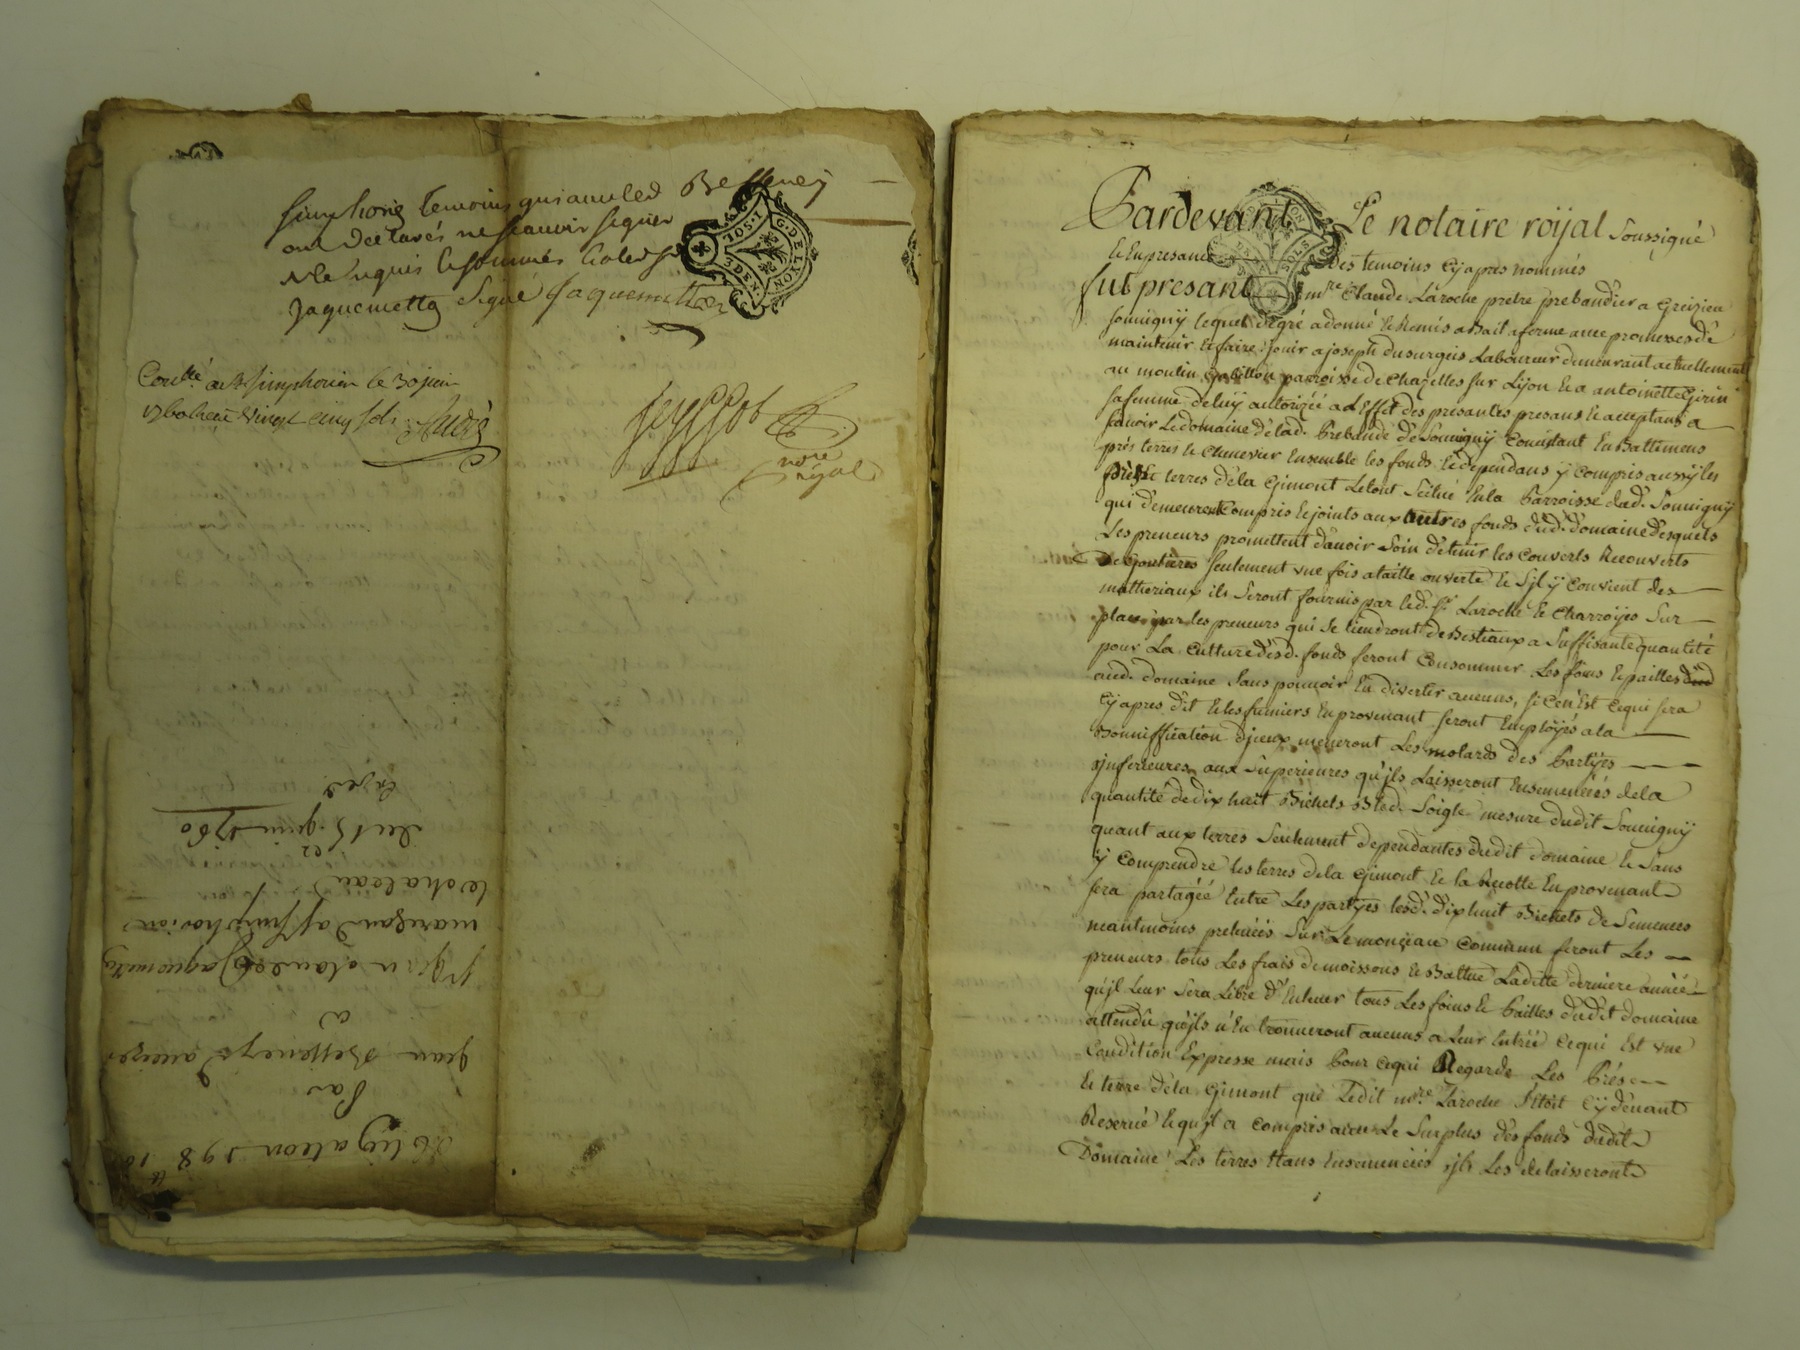 simphorie temoins qui avec led Besseney
ont declarés ne scavoir signer
de ce requis le sommés led sr
Jaquemetta signé Jaquemetton
Con^lé a st simphorien le 30 juin
1760 vingt cinq sols
no^re
royal
G. DE LYON
3 DEN.
Obligation 198 ^lt 10
Par
jean Besseneyd
a
sr jean claude Jaquemetta
marchand a st simphorien
le chateau
du 15 juin 1760
Pardevant Le notaire roÿal Soussigné
Et En presance des temoins cy apres nommés
fut presant m^re Claude Laroche pretre prebandier a Grezieu
Souvigny lequel de gré a donné Et Remis a Bail a ferme avec promesses de
maintenir Et faire Jouir a joseph dusurgeis Laboureur demeurant actuellement
au moulin Gabillon parroisse de Chazelles sur Lyon Et a antoinette Girin
sa femme de luy autorizéé a L Effet des presantes presans Et acceptans a
scavoir Le domaine de lad. Prebande de Souvigny Consistant En Battimens
prés terres Et Chenevier Ensemble les fonds En dependans y Compris aussy les
Prés Et terres de la Gimont Le tout Scitué En la Parroisse dud. Souvigny
qui demeurent Compris Et joints aux autres fonds dud. domaine desquels
Les preneurs promettent d'avoir Soin de tenir les Couverts Recouverts
de Goutieres seulement une fois a taille ouverte Et S'jl y Convient des
matteriaux ils Seront fournis par led. s^r Laroche Et Charroyes Sur
place par les preneurs qui se tiendront de Bestiaux a Suffisante quantité
pour La Culture desd. fonds feront Consommer Les foins Et pailles dud
aud. domaine Sans pouvoir En divertir aucuns, si Ce n'Est Ce qui sera
Cy apres dit Et les fumiers En provenant seront Employés a la
Bonniffication d'jceux meneront Les molards des Partyes
jnferieures aux Superieures qu'jls Laisseront Ensemencéés de la
quantité de dix huit Bichets Bled Soigle mesure dudit Souvigny
quant aux terres Seulement dependantes dudit domaine Et Sans
y Comprendre les terres de la Gimont Et la Recolte En provenant
sera partagéé Entre Les partyes lesd. dix huit Bichets de Semences
neantmoins prelevéés Sur Le monceau Commun feront Les
preneurs tous Les frais de moissons Et Battue Laditte derniere année
qu'jl Leur Sera Libre d'Enlever tous Les foins Et Pailles dudit domaine
attendû qu'jls n'En trouveront aucuns a Leur Entréé Ce qui Est une
Condition Expresse mais Pour Ce qui Regarde Les Prés
Et terre de la Gimont que Ledit m^re Laroche S'Etoit Cy devant
Reservé Et qu'jl a Compris avec Le Surplus des fonds dudit
Domaine Les terres Etans Ensemencéés jls Les delaisseront